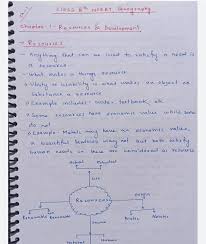 CLASS 8th NCERT Geography
Chapter-1 - Resources & Development
- Resources
- Anything that can be used to satisfy a need is
a resource.
- What makes a things resource
- Utility or usability is what makes an object or
substance a resource
• Example includes: water, textbook, etc.
- Some resources have economic value while some
do not
• Example - Metals may have an economic value,
a beautiful landscape may not but both satisfy
human needs so these are considered as resource
Actual
Potential
use
Resources
origin
Renewable
Abiotic
Biotic